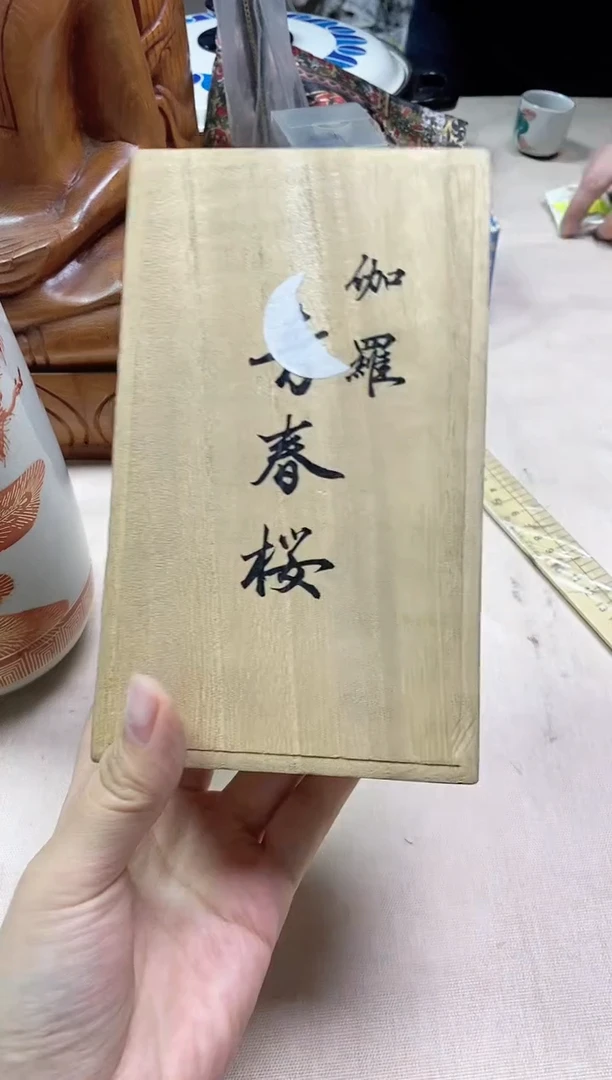 伽羅
芳春桜